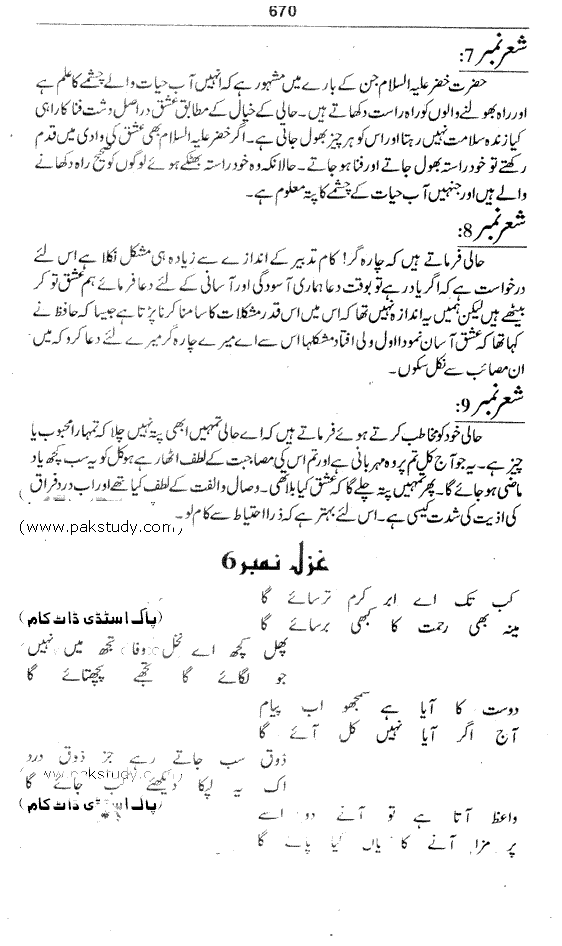 670
شعر نمبر 7:
حضرت خضر علیہ السلام جن کے بارے میں مشہور ہے کہ انہیں آب حیات والے چشمے کا علم ہے
اور راہ بھولنے والوں کو راہ راست دکھاتے ہیں۔ حالی کے خیال کے مطابق عشق دراصل دشت فنا کا راہی
کیا زندہ سلامت نہیں رہتا اور اس کو ہر چیز بھول جاتی ہے۔ اگر خضر علیہ السلام بھی عشق کی وادی میں قدم
رکھتے تو خود راستہ بھول جاتے اور فنا ہو جاتے۔ حالانکہ وہ خود راستہ بھٹکے ہوئے لوگوں کو صحیح راہ دکھانے
والے ہیں اور جنہیں آب حیات کے چشمے کا پتہ معلوم ہے۔
شعر نمبر 8:
حالی فرماتے ہیں کہ چارہ گر! کام تدبیر کے اندازے سے زیادہ ہی مشکل نکلا ہے اس لئے
درخواست ہے کہ اگر یاد رہے تو بوقت دعا ہماری آسودگی اور آسانی کے لئے دعا فرمائے ہم عشق تو کر
بیٹھے ہیں لیکن ہمیں یہ اندازہ نہیں تھا کہ اس میں اس قدر مشکلات کا سامنا کرنا پڑتا ہے جیسا کہ حافظ نے
کہا تھا کہ عشق آسان نمود اول ولی افتاد مشکلہا اس سے اے میرے چارہ گر میرے لئے دعا کرو کہ میں
ان مصائب سے نکل سکوں۔
شعر نمبر 9:
حالی خود کو مخاطب کرتے ہوئے فرماتے ہیں کہ اے حالی تمہیں ابھی پتہ نہیں چلا کہ تمہارا محبوب یا
چیز ہے۔ یہ جو آج کل تم پر وہ مہربانی ہے اور تم اس کی مصاحبت کے لطف اٹھا رہے ہو کل کو یہ سب کچھ یاد
ماضی ہو جائے گا۔ پھر تمہیں پتہ چلے گا کہ عشق کیا بلا تھی۔ وصال و الفت کے لطف کیا تھے اور اب درد فراق
کی اذیت کی شدت کیسی ہے۔ اس لئے بہتر ہے کہ ذرا احتیاط سے کام لو۔
(www.pakstudy.com)
غزل نمبر 6
کب تک اے ابر کرم ترسائے گا
مینہ بھی رحمت کا کبھی برسائے گا
(پاک اسٹڈی ڈاٹ کام)
پھل کچھ اے نخل وفا تجھ میں نہیں
جو لگائے گا تجھے پچھتائے گا
دوست کا آیا ہے سمجھو اب پیام
آج اگر آیا نہیں کل آئے گا
ذوق سب جاتے رہے جز ذوق درد
اک یہ لپکا دیکھئے کب جائے گا
(پاک اسٹڈی ڈاٹ کام)
واعظ آتا ہے تو آنے دو اسے
پر مزا آنے کا یاں کیا پائے گا